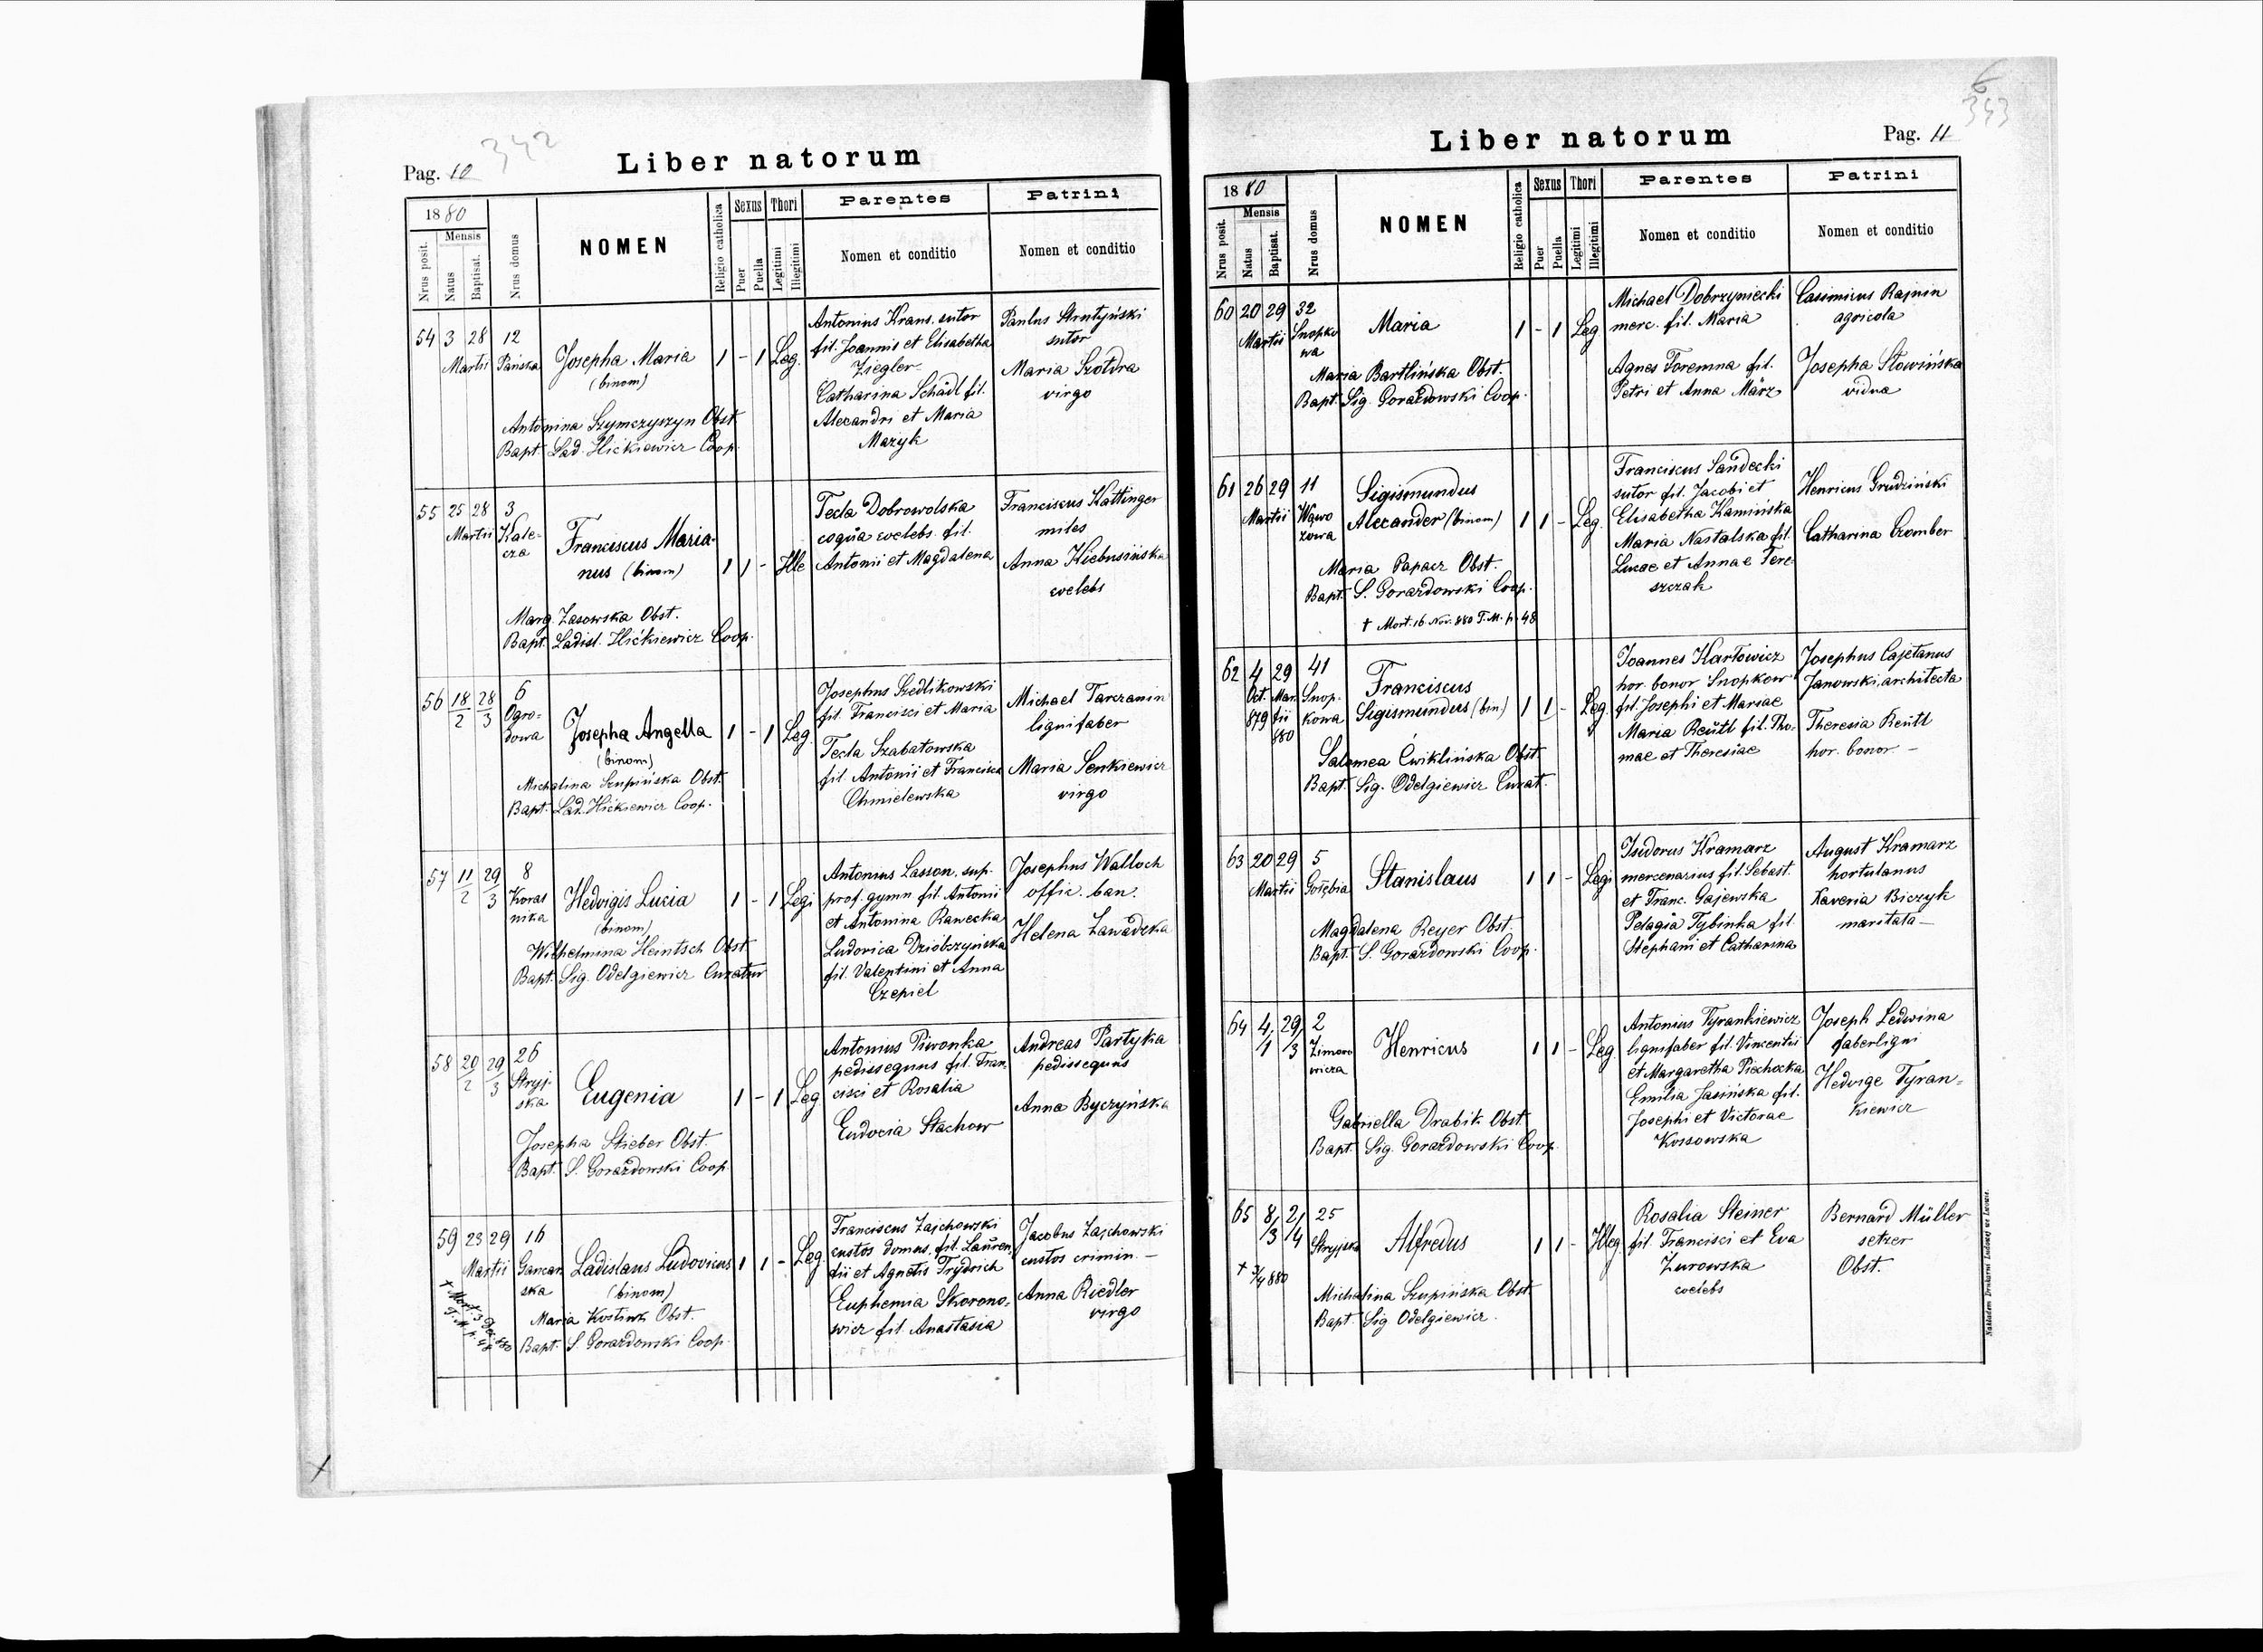 342
Pag. 10
Liber natorum
1880
Mensis
Nrus posit.
Natus
Baptisat.
Nrus domus
NOMEN
Religio catholica
Sexus
Puer
Puella
Thori
Legitimi
Illegitimi
Parentes
Nomen et conditio
Patrini
Nomen et conditio
54 3 28 12
Martii Pańska
Josepha Maria
(binom)
1 - 1 Leg.
Antonina Szymczyszyn Obst.
Bapt. Lad. Hićkiewicz Coop.
Antonius Krans, sutor
fil. Joannis et Elisabetha
Ziegler
Catharina Schädl fil.
Alexandri et Maria
Mazyk
Paulus Strutyński
sutor
Maria Szotdra
virgo
55 25 28 3
Martii Kale-
cza
Franciscus Maria-
nus (binom)
1 1 - Ille
Marg. Zasowska Obst.
Bapt. Ladisl. Hićkiewicz Coop.
Tecla Dobrowolska
coqua coelebs fil.
Antonii et Magdalena
Franciscus Kattinger
miles
Anna Kiebusińska
coelebs
56 18/2 28/3 6
Ogro-
dowa
Josepha Angella
(binom)
1 - 1 Leg.
Michalina Szupińska Obst.
Bapt. Lad. Hićkiewicz Coop.
Josephus Szedlikowski
fil. Francisci et Maria
Tecla Szabatowska
fil. Antonii et Francisca
Chmielewska
Michael Tarczanin
lignifaber
Maria Senkiewicz
virgo
57 11/2 29/3 8
Koral
nika
Hedvigis Lucia
(binom)
1 - 1 Legi
Wilhelmina Heintsch Obst.
Bapt. Sig. Odelgiewicz Curator
Antonius Lasson, sup.
prof. gymn fil. Antonii
et Antonina Rawecka
Ludovica Dzióbczyńska
fil. Valentini et Anna
Czepiel
Josephus Walloch
offic. ban.
Helena Zawadzka
58 20/2 29/3 26
Stryj-
ska
Eugenia
1 - 1 Leg
Josepha Stieber Obst.
Bapt. S. Gorazdowski Coop.
Antonius Piwonka
pedissequus fil. Fran-
cisci et Rosalia
Eudocia Stachow
Andreas Partyka
pedissequus
Anna Byczyńska
59 23 29 16
Martii Gancar
ska
Ladislaus Ludovicus
(binom)
1 1 - Leg
† Mort. 3 Dec. 880
T. M. p. 48
Maria Kostiuk Obst.
Bapt. S. Gorazdowski Coop.
Franciscus Zajchowski
custos domus, fil. Lauren-
tii et Agnetis Trydrich
Euphemia Skorono-
wicz fil. Anastasia
Jacobus Zajchowski
custos crimin. —
Anna Riedler
virgo
6
343
Liber natorum
Pag. 11
1880
Mensis
Nrus posit.
Natus
Baptisat.
Nrus domus
NOMEN
Religio catholica
Sexus
Puer
Puella
Thori
Legitimi
Illegitimi
Parentes
Nomen et conditio
Patrini
Nomen et conditio
60 20 29 32
Martii Snopko
wa
Maria
1 - 1 Leg
Maria Bartlińska Obst.
Bapt. Sig. Gorazdowski Coop.
Michael Dobrzyniecki
merc. fil. Maria
Agnes Foremna fil.
Petri et Anna März
Casimirus Rajnin
agricola
Josepha Słowińska
vidua
61 26 29 11
Martii Wąwo
zowa
Sigismundus
Alexander (binom)
1 1 - Leg.
Maria Papacz Obst.
Bapt. S. Gorazdowski Coop.
† Mort. 16 Nov. 880 T. M. p. 48
Franciscus Sandecki
sutor fil. Jacobi et
Elisabetha Kamińska
Maria Nastalska fil.
Lucae et Annae Tere-
szczak
Henricus Grudziński
Catharina Czomber
62 4 29 41
Oct. Mar Snop-
879 tii kowa
880
Franciscus
Sigismundus (bin.)
1 1 - Leg.
Salomea Ćwiklińska Obst.
Bapt. Sig. Odelgiewicz Curat.
Joannes Karłowicz
hor. bonor Snopkow
fil. Josephi et Mariae
Maria Reütl fil. Tho-
mae et Theresiae
Josephus Cajetanus
Janowski, architecta
Theresia Reütl
hor. bonor. —
63 20 29 5
Martii Gołębia
Stanislaus
1 1 - Legi
Magdalena Reyer Obst.
Bapt. S. Gorazdowski Coop.
Isidorus Kramarz
mercenarius fil. Sebast.
et Franc. Gajewska
Pelagia Tybinka fil.
Stephani et Catharina
August Kramarz
hortulanus
Xaveria Biczyk
maritata —
64 4/1 29/3 2
Zimoro
wicza
Henricus
1 1 - Leg.
Gabriella Drabik Obst.
Bapt. Sig. Gorazdowski Coop.
Antonius Tyrankiewicz
lignifaber fil. Vincentii
et Margaretha Piechocka
Emilia Jasińska fil.
Josephi et Victorae
Kossowska
Joseph Ledwina
faberligni
Hedvige Tyran-
kiewicz
65 8/3 2/4 25
Stryjska
Alfredus
1 1 - Illeg
† 3/4 880
Michalina Szupińska Obst.
Bapt. Sig Odelgiewicz.
Rosalia Steiner
fil. Francisci et Eva
Zurowska
coelebs
Bernard Müller
setzer
Obst.
Nakładem Drukarni Ludowej we Lwowie.